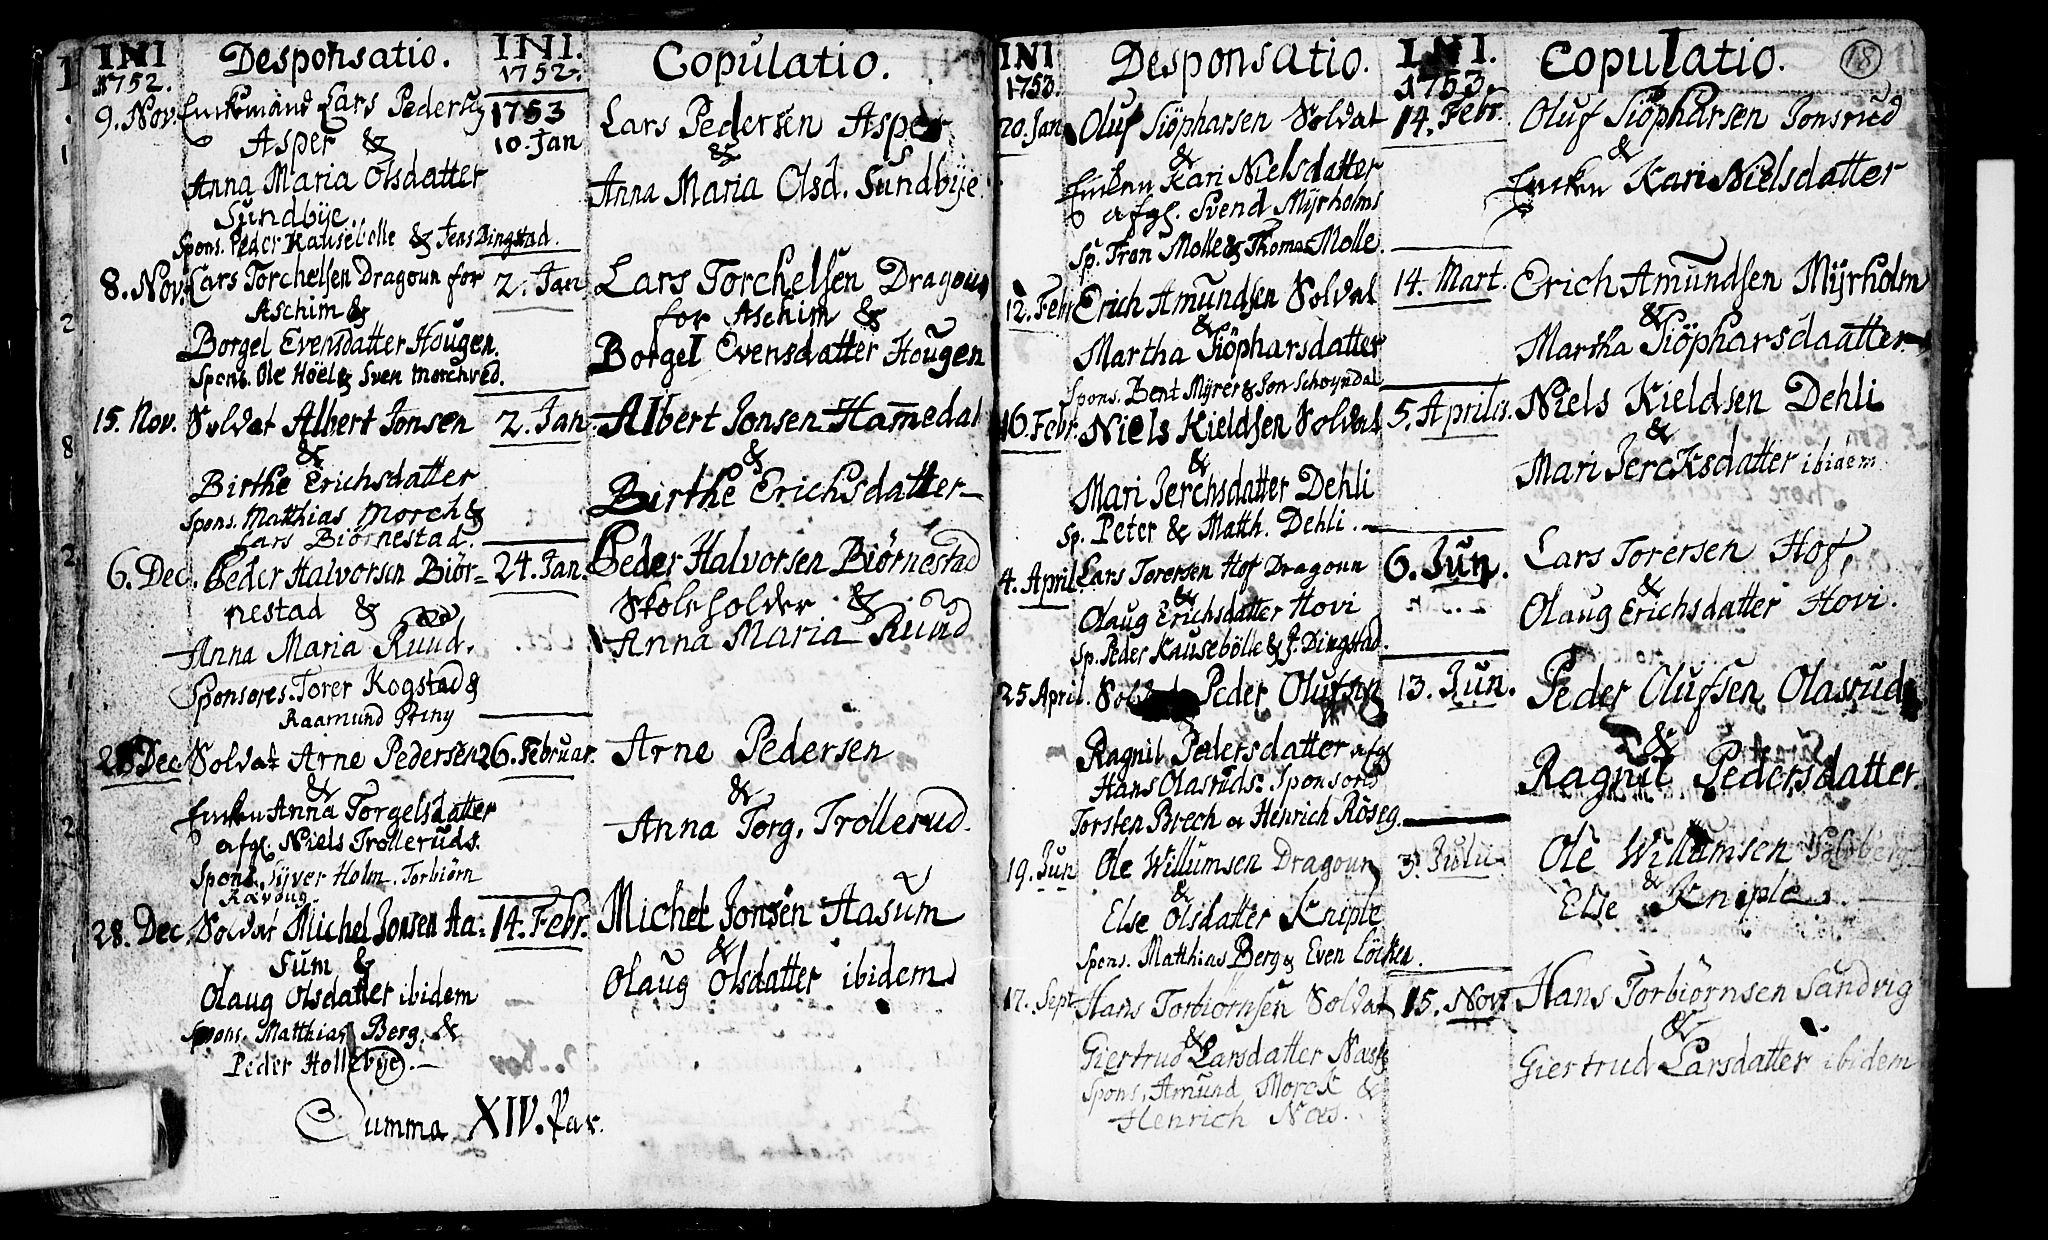 INI
1752.
Desponsatio.
INI.
1752.
Copulatio.
9. Nov. Enckemand Lars Pedersen
Asper &
Anna Maria Olsdatter
Sundbÿe.
Spons. Peder Kausebølle & Jens Dingstad.
1753
10. Jan
Lars Pedersen Asper
&
Anna Maria Olsd. Sundbÿe
8. Nov. Lars Torchelsen Dragoun for
Aschim &
Borgel Evensdatter Hougen.
Spons. Ole Höel & Sven Morchved.
2. Jan
Lars Torchelsen Dragoun
for Aschim &
Borgel Evensdatter Hougen
15. Nov. Soldat Albert Jonsen
&
Birthe Erichsdatter
Spons. Matthias Morch &
Lars Biörnestad.
2. Jan
Albert Jonsen Hamedal
&
Birthe Erichsdatter
6. Dec. Peder Halvorsen Biör=
nestad &
Anna Maria Ruud.
Sponsores. Torer Kogstad &
Raamund Griny
24. Jan.
Peder Halvorsen Biörnestad
Skoleholder &
Anna Maria Ruud
28 Dec Soldat Arne Pedersen
&
Enken Anna Torgelsdatter
afgl. Niels Trolleruds.
Spons. Syver Holm. Torbiörn
Ravoug.
26. Februar.
Arne Pedersen
&
Anna Torg. Trollerud.
28. Dec. Soldat Michel Jonsen Ha=
sum &
Olaug Olsdatter ibidem
Spons. Matthias Berg. &
Peder Hollebÿe.
14. Febr.
Michel Jonsen Hasum
&
Olaug Olsdatter ibidem
Summa XIV. Par.
INI
1753.
Desponsatio.
INI.
1753.
Copulatio.
18
20. Jan Oluf Siöpharsen Soldat
&
Encken Kari Nielsdatter
afgl. Svend Mÿrholms
Sp. Tron Molle & Thomas Molle.
14. Febr.
Oluf Siöpharsen Jonsrud
&
Encken Kari Nielsdatter
12. Febr Erich Amundsen Soldat
&
Martha Siöpharsdatter
Spons. Bent Mÿrer & Jon Schoyndal
14. Mart.
Erich Amundsen Mÿrholm
&
Martha Siöpharsdaatter
16. Febr. Niels Kieldsen Soldat
&
Mari Jerchsdatter Dehli
Sp. Peter & Matth. Dehli.
5. Aprilis.
Niels Kieldsen Dehli
&
Mari Jercksdatter ibidem
4. April. Lars Torersen Hof Dragoun
&
Olaug Erichsdatter Hovi
Sp. Peder Kausebölle & J. Dingstad.
6. Jun.
Lars Torersen Hof,
&
Olaug Erichsdatter Hovi.
25 April. Soldat Peder Olufsen
Ragnil Pedersdatter afgl
Hans Olasruds: Sponsores
Torsten Brech & Henrich Röseg.
13. Jun.
Peder Olufsen Olasrud
&
Ragnil Pedersdatter.
19. Jun Ole Willumsen Dragoun
&
Else Olsdatter Kniple
Spons. Matthias Berg & Even Löcken.
3. Julii
Ole Willumsen Solberg
&
Else Kniple
17. Sept Hans Torbiornsen Soldat
&
Giertrud Larsdatter Næs
Spons. Amund Morck &
Henrich Næs.
15. Nov.
Hans Torbiörnsen Sandvig
&
Giertrud Larsdatter ibidem